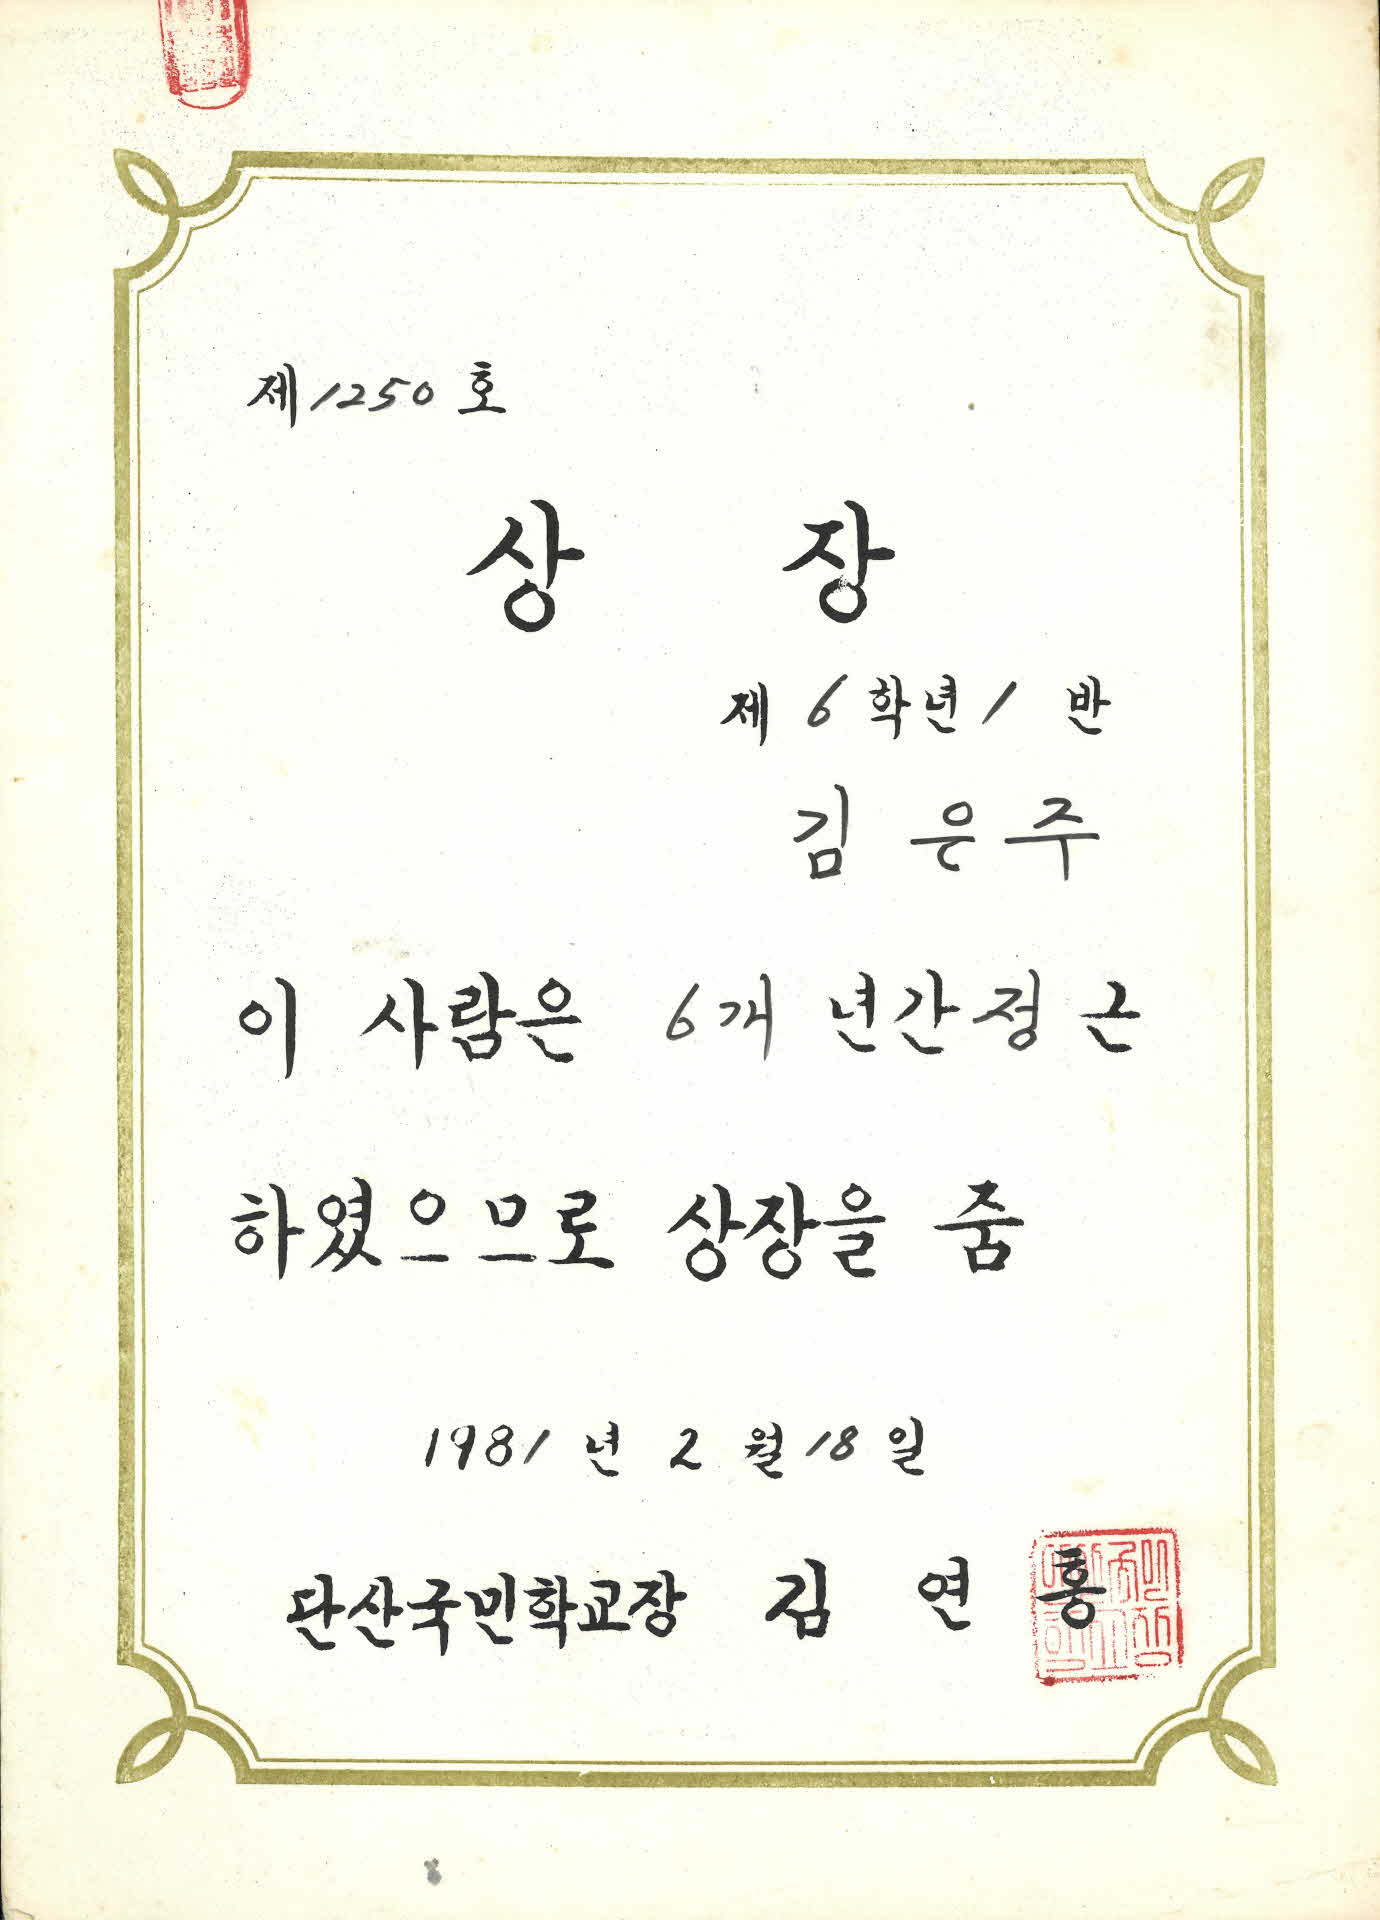 제1250호
상 장
제 6 학년 1 반
김 은 주
이 사람은 6개 년간정근
하였으므로 상장을 줌
1981 년 2 월 18 일
단산국민학교장 김 연 홍